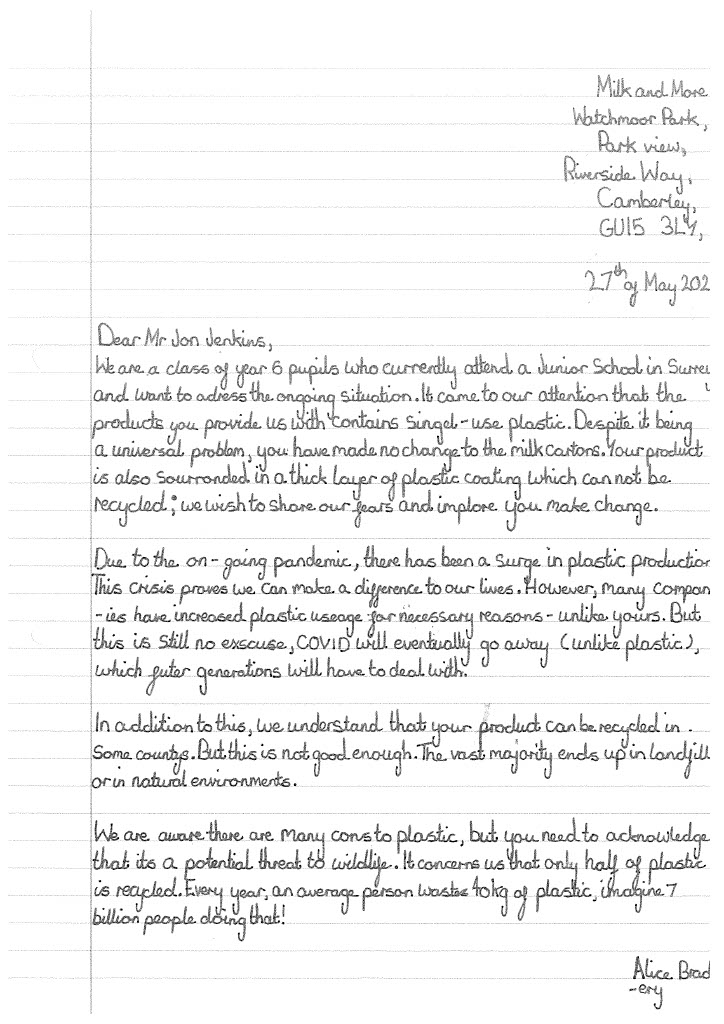 Milk and More
Watchmoor Park,
Park view,
Riverside Way,
Camberley,
GU15 3LY,
27th of May 202
Dear Mr Jon Jenkins,
We are a class of year 6 pupils who currently attend a Junior School in Surrey
and want to adress the ongoing situation. It came to our attention that the
products you provide us with contains singel-use plastic. Despite it being
a universal problem, you have made no change to the milk cartons. Your product
is also sourronded in a thick layer of plastic coating which can not be
recycled; we wish to share our fears and implore you make change.
Due to the on-going pandemic, there has been a surge in plastic production
This crisis proves we can make a difference to our lives. However, many compan
-ies have increased plastic useage for necessary reasons - unlike yours. But
this is still no escuse, COVID will eventually go away (unlike plastic),
which futer generations will have to deal with.
In addition to this, we understand that your product can be recycled in
some countys. But this is not good enough. The vast majority ends up in landfill
or in natural environments.
We are aware there are many cons to plastic, but you need to acknowledge
that its a potential threat to wildlife. It concerns us that only half of plastic
is recycled. Every year, an average person wastes 40kg of plastic, imagine 7
billion people doing that!
Alice Brad
-ery